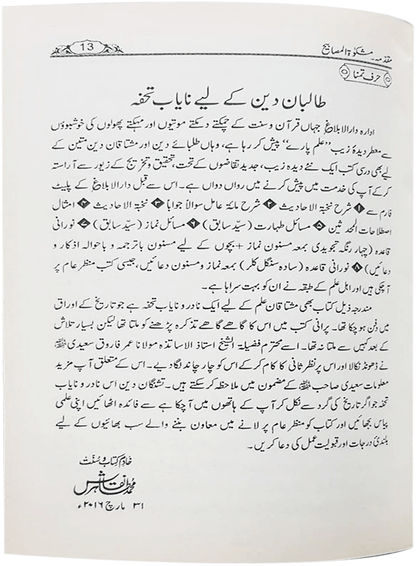 مقدمہ۔ مشکوٰۃ المصابیح 13
حرف تمنا
طالبان دین کے لیے نایاب تحفہ
ادارہ دارالابلاغ جہاں قرآن و سنت کے چمکتے دمکتے موتیوں اور مہکتے پھولوں کی خوشبوؤں
سے معطر دیدہ زیب ”علم پارے“ پیش کر رہا ہے، وہاں طلبائے دین اور مشتاقان دین متین کے
لیے بھی درسی کتب ایک نئے دیدہ زیب، جدید تقاضوں کے تحت، تحقیق و تخریج کے زیور سے آراستہ
کر کے آپ کی خدمت میں پیش کرنے میں رواں دواں ہے۔ اس سے قبل دارالابلاغ کے پلیٹ
فارم سے ❶ شرح نخبۃ الاحادیث ❷ شرح مائۃ عامل سوالاً جواباً ❸ نخبۃ الاحادیث ❹ امثال
اصطلاحات المحدثین ❺ مسائل طہارت (سیّد سابق) ❻ مسائل نماز (سیّد سابق) ❼ نورانی
قاعدہ (چہار رنگہ تجویدی بمعہ مسنون نماز + بچوں کے لیے مسنون باترجمہ و باحوالہ اذکار و
دعائیں) ❽ نورانی قاعدہ (سادہ سنگل کلر) بمعہ نماز و مسنون دعائیں، جیسی کتب منظر عام پر
آچکی ہیں اور اہل علم کے طبقہ نے ان کو بہت سراہا ہے۔
مندرجہ ذیل کتاب بھی مشتاقان علم کے لیے ایک نادر و نایاب تحفہ ہے جو تاریخ کے اوراق
میں دفن ہو چکا تھا۔ پرانی کتب میں اس کا گاہے گاہے تذکرہ پڑھنے کو ملتا تھا لیکن بسیار تلاش
کے بعد کہیں سے ملتا نہ تھا۔ اسے محترم فضیلۃ الشیخ استاذ الاساتذہ مولانا عمر فاروق سعیدی
نے ڈھونڈ نکالا اور اس پر نظر ثانی کا کام کر کے اس کو چار چاند لگا دیے۔ اس کے متعلق آپ مزید
معلومات سعیدی صاحب کے مضمون میں ملاحظہ کر سکتے ہیں۔ تشنگان دین اس نادر و نایاب
تحفہ جو اگر تاریخ کی گرد سے نکل کر آپ کے ہاتھوں میں آ چکا ہے سے فائدہ اٹھائیں اپنی علمی
پیاس بجھائیں اور کتاب کو منظر عام پر لانے میں معاون بننے والے سب بھائیوں کے لیے
بلندیٔ درجات اور قبولیت عمل کی دعا کریں۔
خادم کتاب و سنت
محمد طاہر نقاش
۳۱ مارچ ۲۰۱۶ء